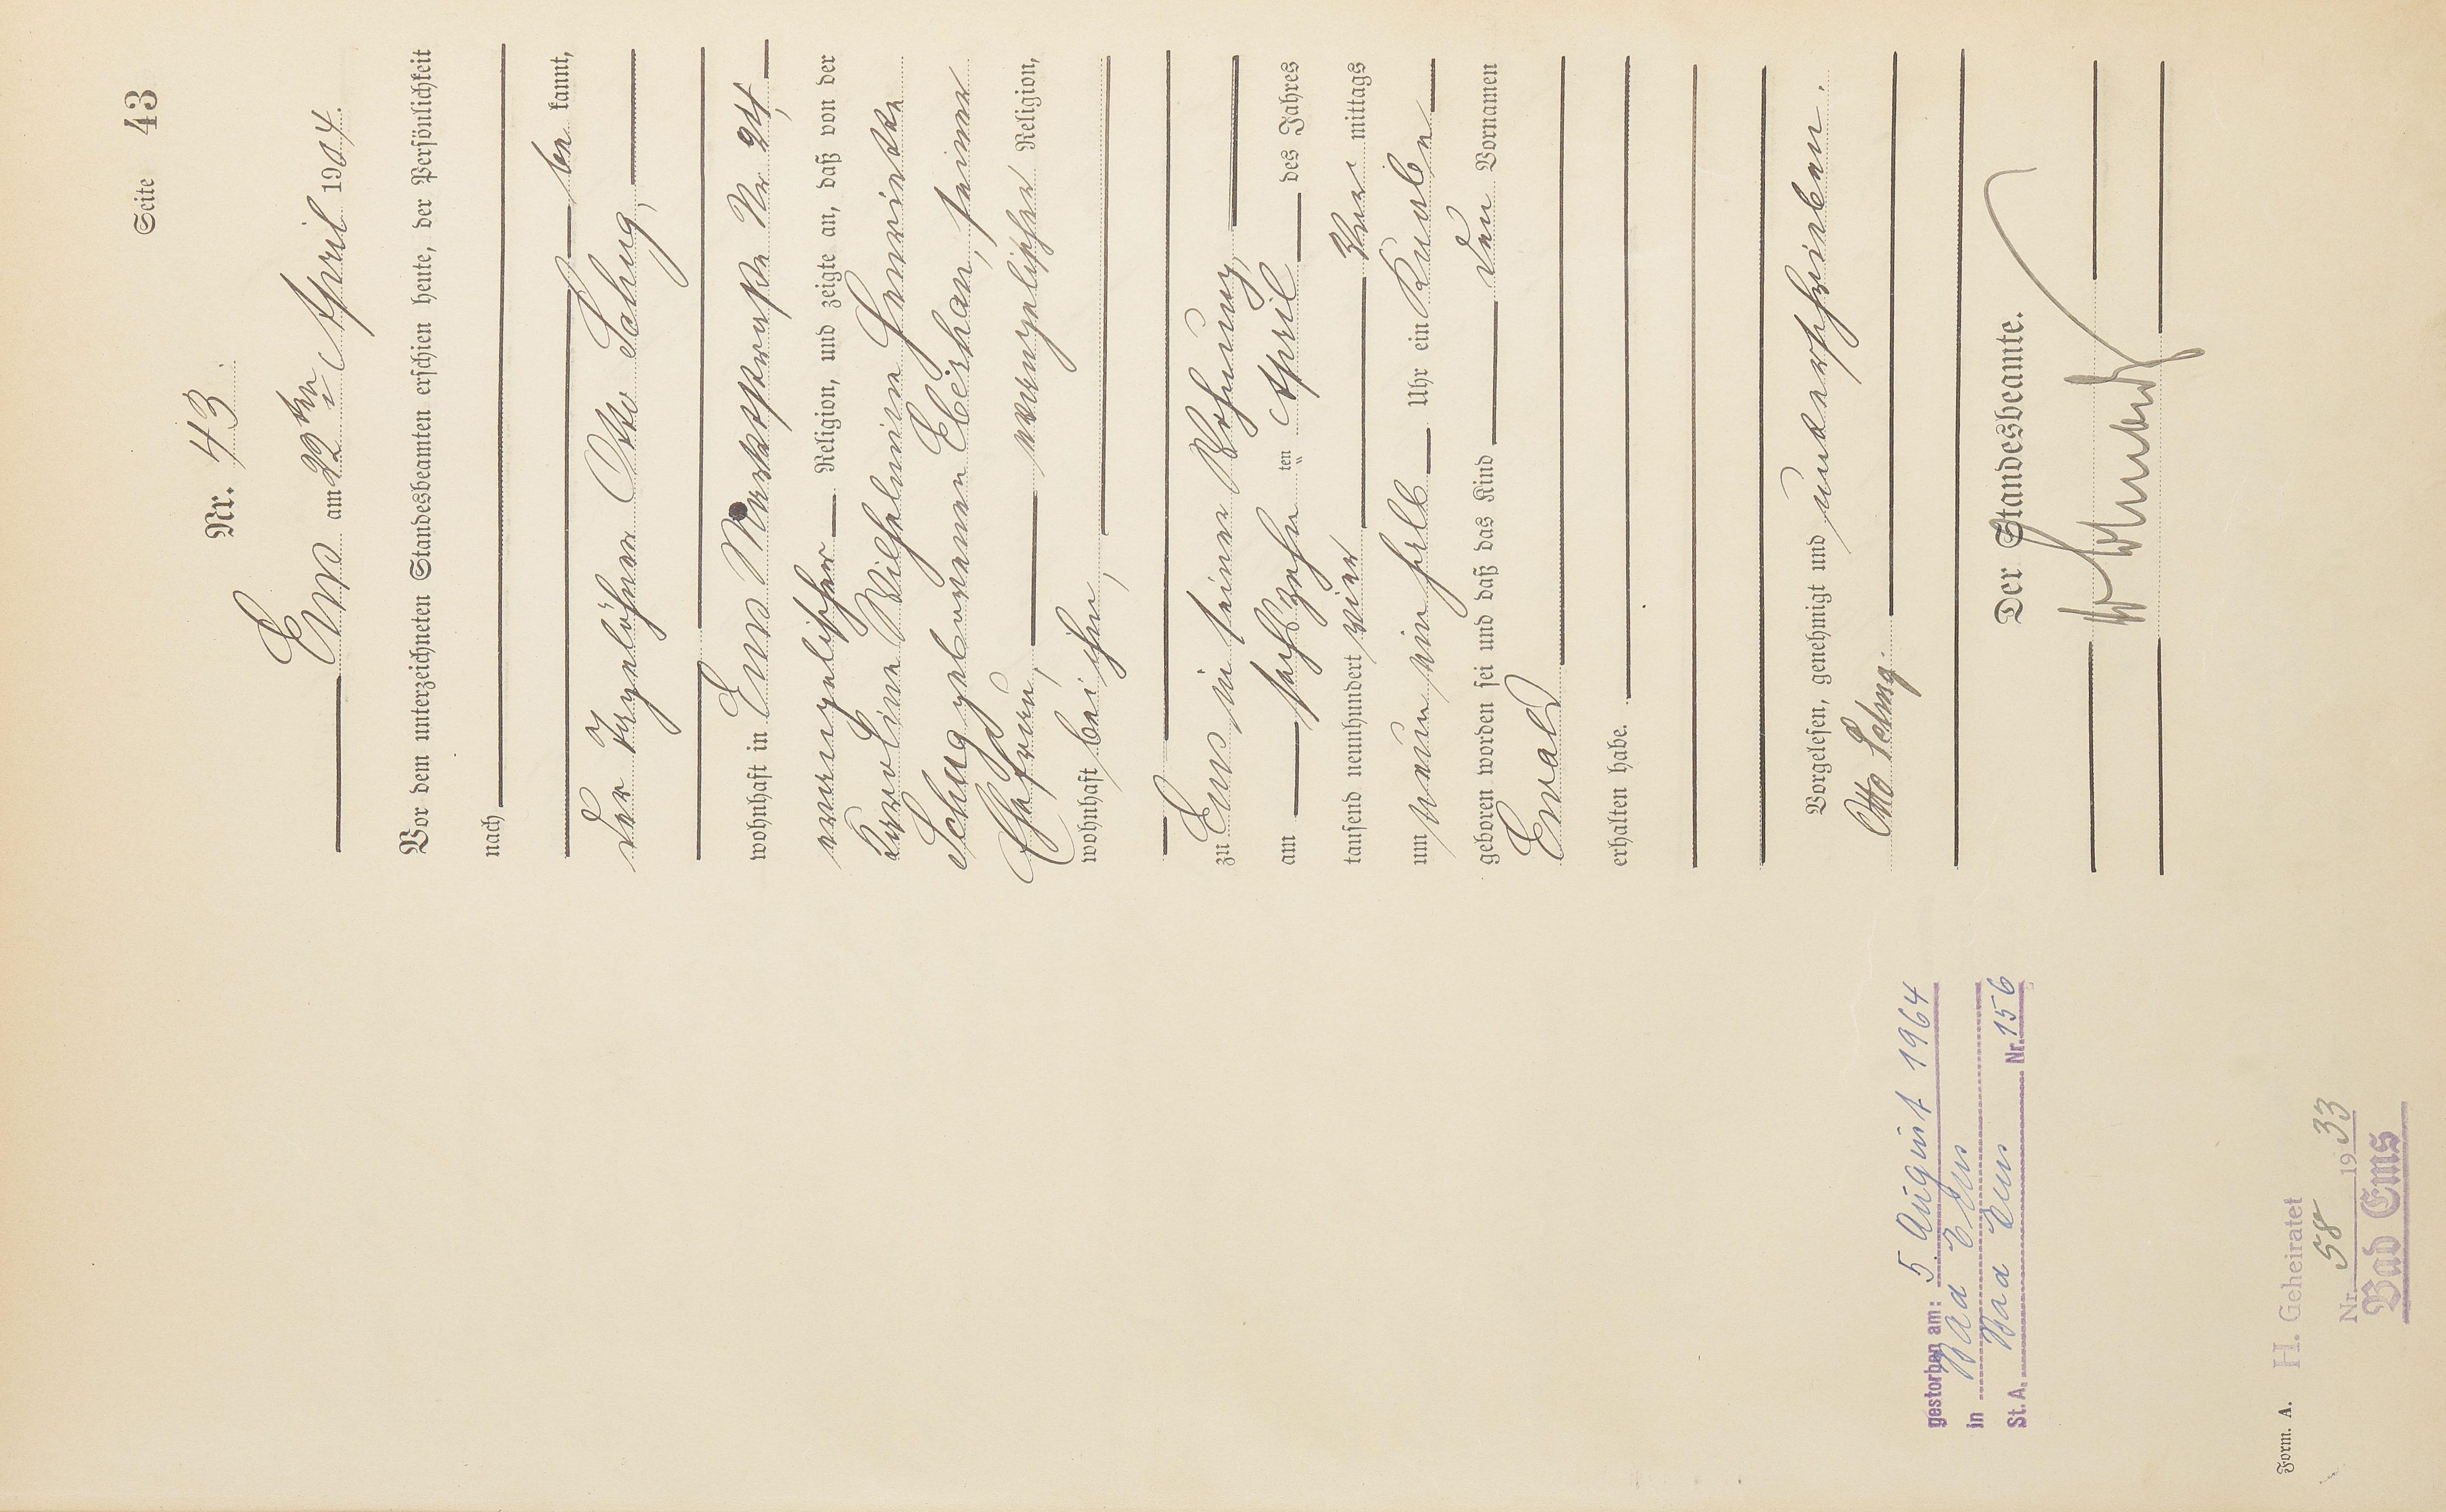 Seite 43
Nr. 43.
Ems am 22ten April 1904.
Vor dem unterzeichneten Standesbeamten erschien heute, der Persönlichkeit
nach
be kannt,
der Tagelöhner Otto Schug,
wohnhaft in Ems Marktstraße Nr 94,
evangelischer Religion, und zeigte an, daß von der
Karoline Wilhelmine Henriette
Schug geborenen Ebishan, seiner
Ehefrau, evangelischer Religion,
wohnhaft bei ihm,
zu Ems in seiner Wohnung
am sechszehn ten April des Jahres
tausend neunhundert vier Vor mittags
um neun ein halb Uhr ein Knabe
geboren worden sei und daß das Kind den Vornamen
Ewald
erhalten habe.
Vorgelesen, genehmigt und unterschrieben.
Otto Schug.
Der Standesbeamte.
gestorben am: 5. August 1964
in Bad Ems
St. A. Bad Ems Nr. 156
Form. A. H. Geheiratet
Nr. 58 1933
Bad Ems